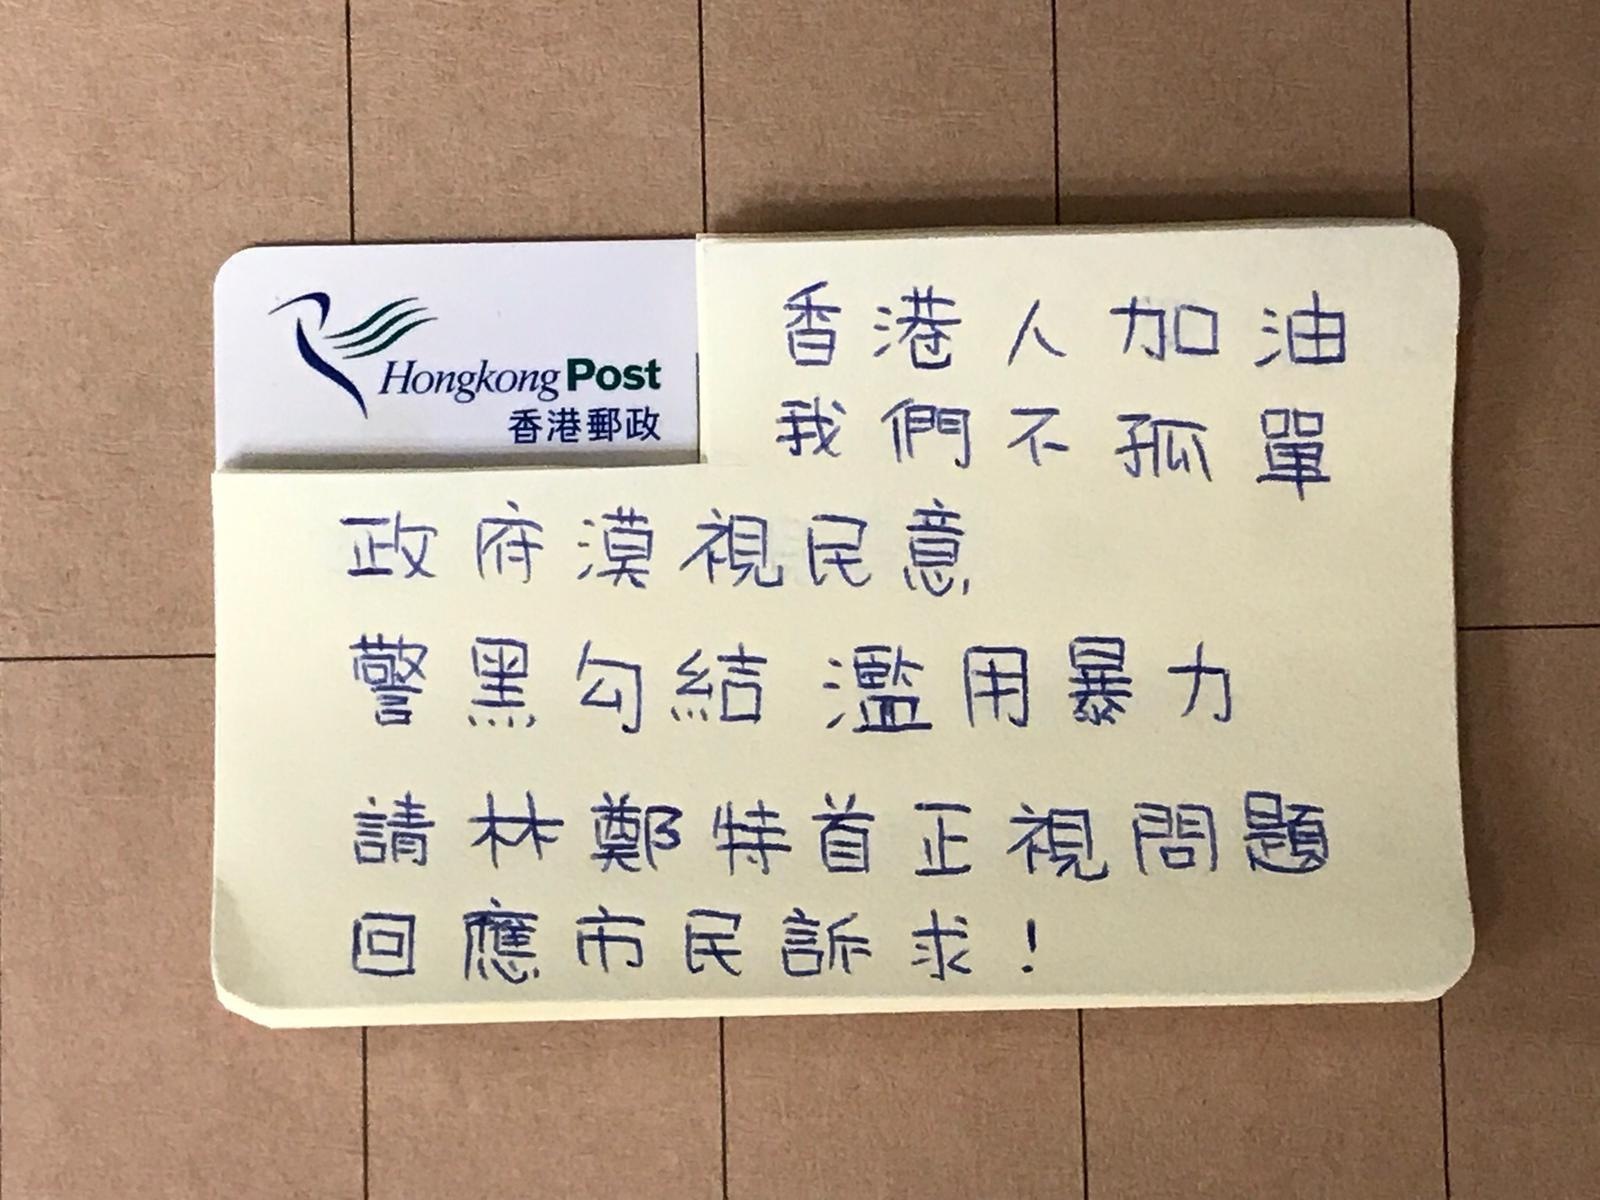 Hongkong Post
香港郵政
香港人加油
我們不孤單
政府漠視民意
警黑勾結 濫用暴力
請林鄭特首正視問題
回應市民訴求！